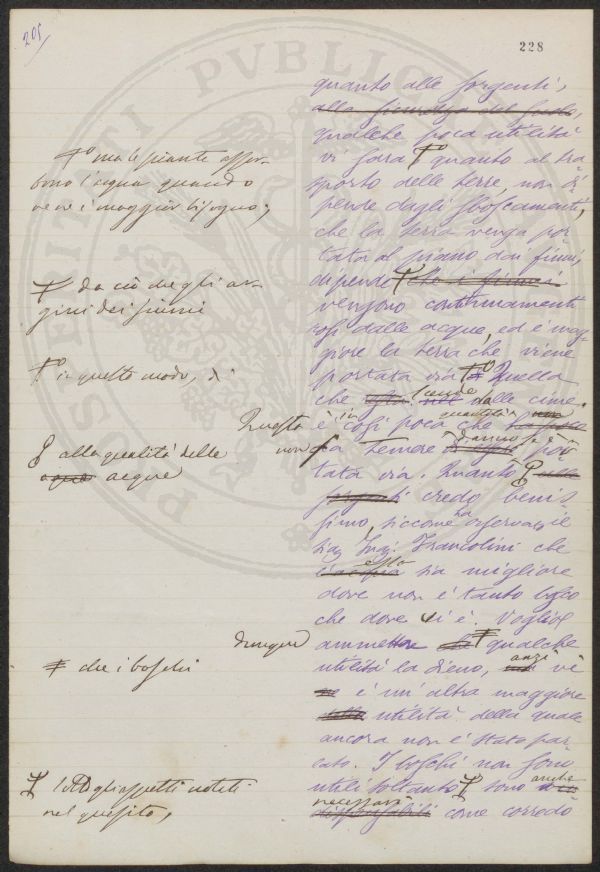 205
228
PVBLICAE VERITATI PVBLIC
quanto alle sorgenti,
alla sicurezza del suolo,
qualche poca utilità
vi sarà quanto al tra
sporto delle terre, non di
pende dagli sboscamenti,
che la terra venga por
tata al piano dai fiumi,
dipende che i fiumi
vengono continuamente
rosi dalle acque, ed è mag-
giore la terra che viene
portata via Quella
che scende dalle cime
è in così poca quantità che
fa temere danno se por
tata via. Quanto alle
sorgenti credo benis
simo, siccome ha osservato il
Sig. Ing. Francolini che
l'acqua essa sia migliore
dove non è tanto bosco
che dove vi è. Voglio
ammettere che qualche
utilità la dieno, anzi vi
è un'altra maggiore
utilità della quale
ancora non è stato par
lato. I boschi non sono
utili soltanto sono anche
necessari
come corredo
ma le piante assor-
bono l'acqua quando
ve ne è maggior bisogno;
da ciò che gli ar-
gini dei fiumi
in questo modo, di
Questo
non
alla qualità delle
acque acque
dunque
che i boschi
gli aspetti notati
nel quesito,